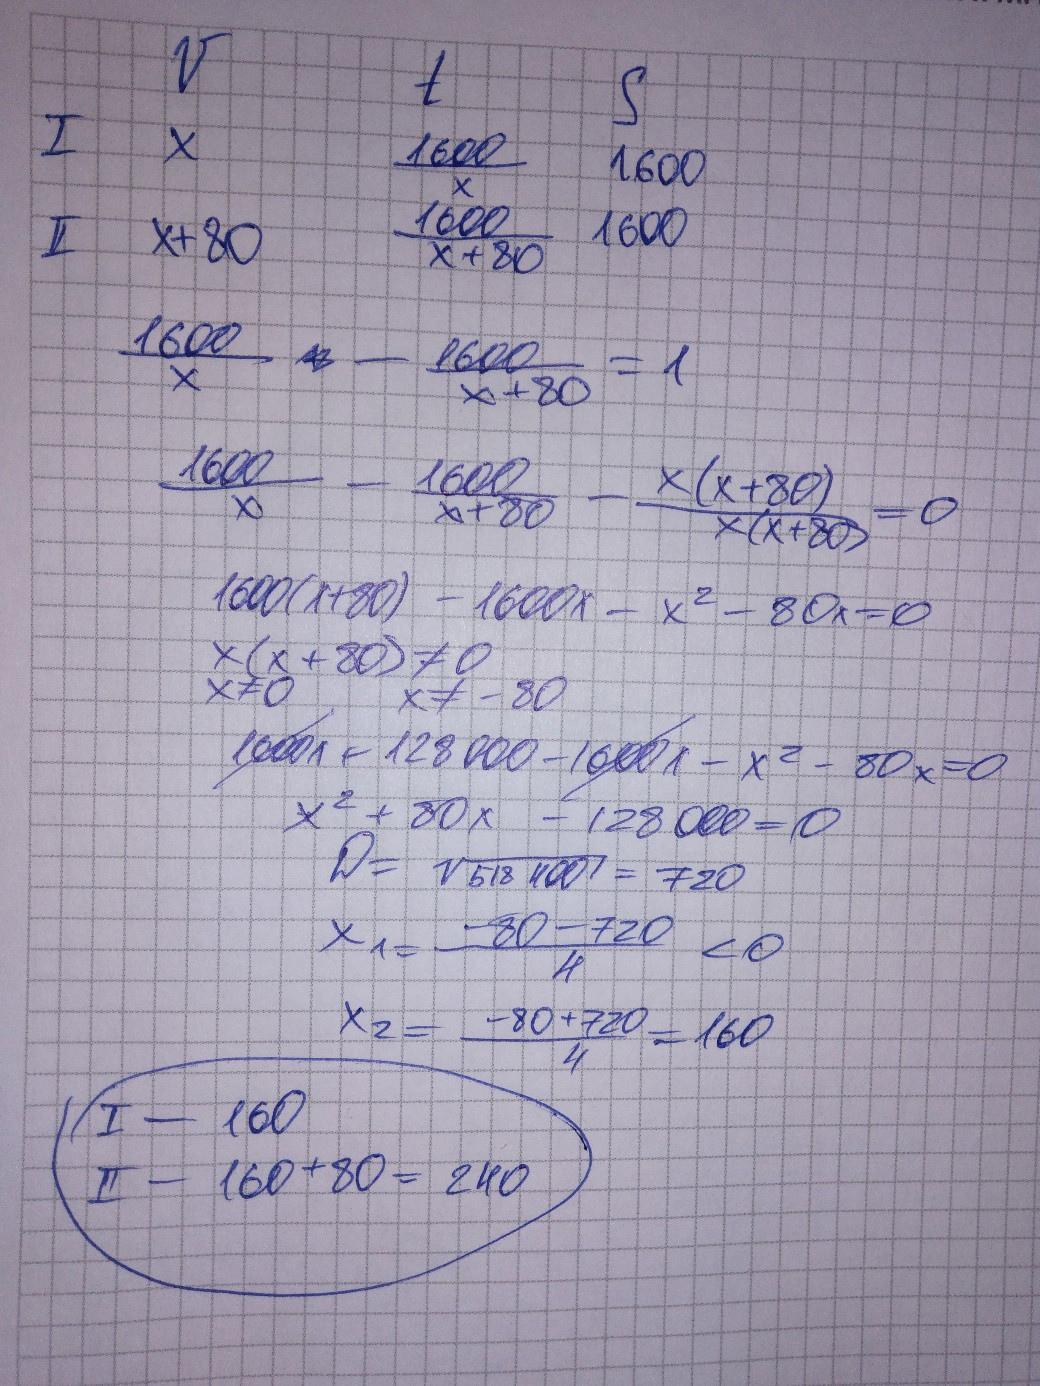 V t S
I x 1600/x 1600
II x+80 1600/x+80 1600
1600/x - 1600/x+80 = 1
1600/x - 1600/x+80 - x(x+80)/x(x+80) = 0
1600(x+80) - 1600x - x² - 80x = 0
x(x+80) ≠ 0
x≠0 x≠-80
1600x + 128000 - 1600x - x² - 80x = 0
x² + 80x - 128000 = 0
D = √518400 = 720
x₁ = -80-720/4 < 0
x₂ = -80+720/4 = 160
I — 160
II — 160+80 = 240